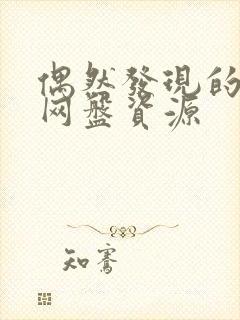 偶然發現的
网盤資源
知騫